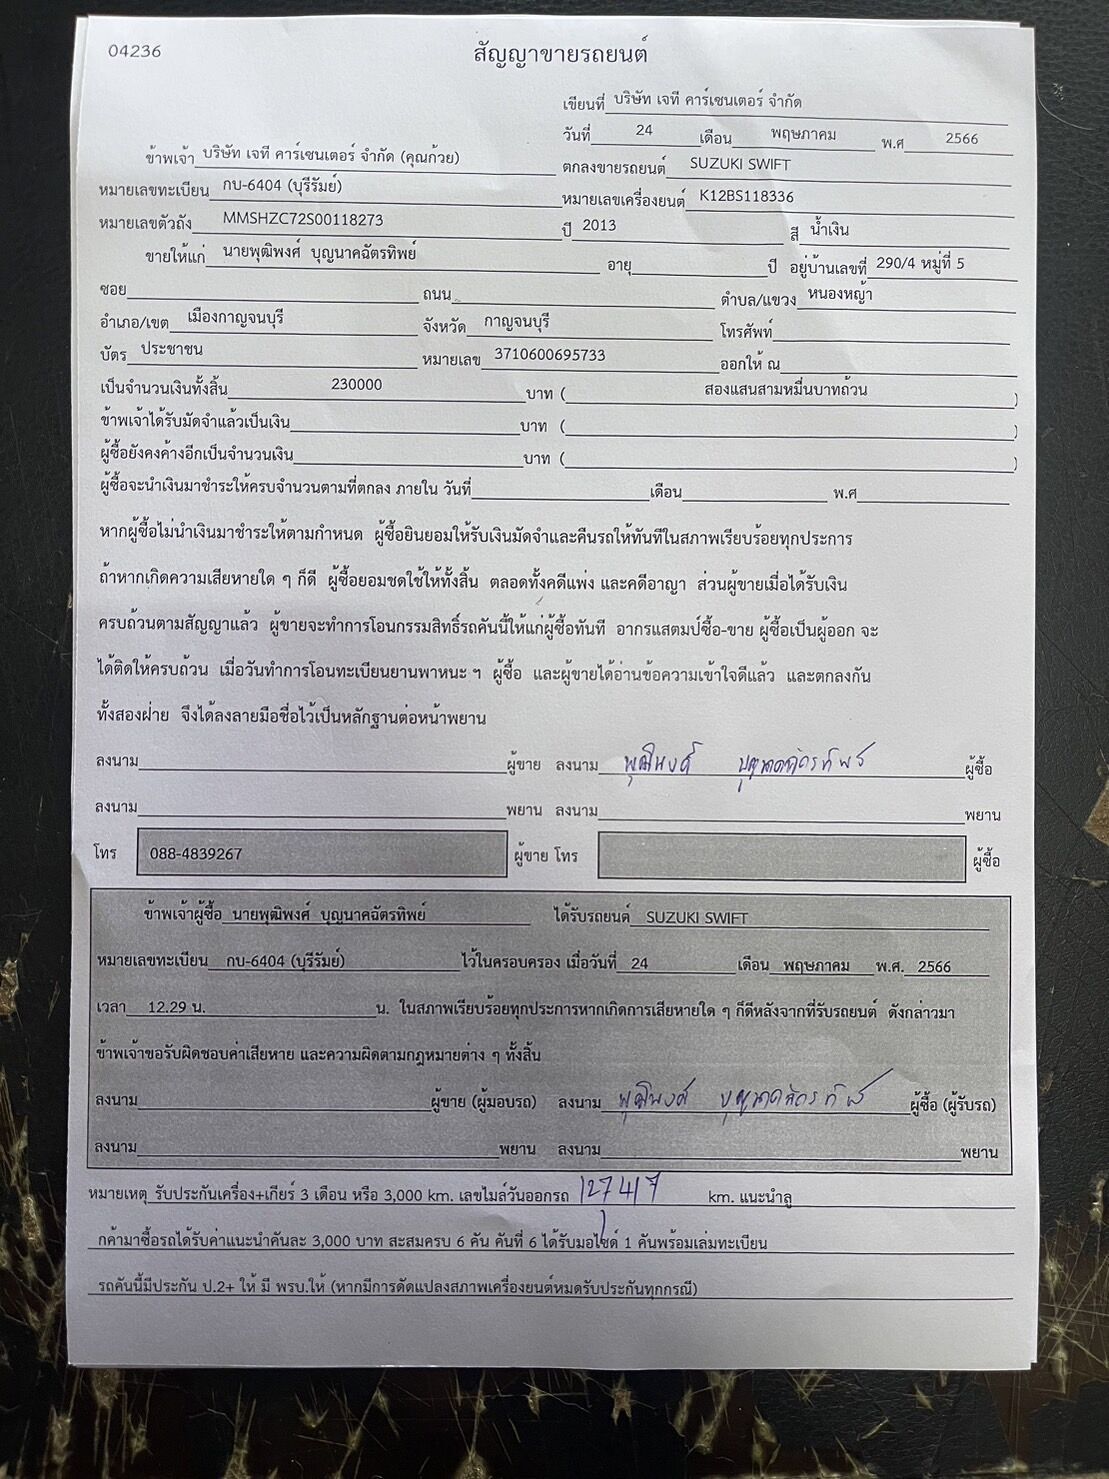 04236
สัญญาขายรถยนต์
เขียนที่ บริษัท เจที คาร์เซนเตอร์ จำกัด
วันที่ 24 เดือน พฤษภาคม พ.ศ 2566
ข้าพเจ้า บริษัท เจที คาร์เซนเตอร์ จำกัด (คุณก้วย) ตกลงขายรถยนต์ SUZUKI SWIFT
หมายเลขทะเบียน กบ-6404 (บุรีรัมย์) หมายเลขเครื่องยนต์ K12BS118336
หมายเลขตัวถัง MMSHZC72S00118273 ปี 2013 สี น้ำเงิน
ขายให้แก่ นายพุฒิพงศ์ บุญนาคฉัตรทิพย์ อายุ ปี อยู่บ้านเลขที่ 290/4 หมู่ที่ 5
ซอย ถนน ตำบล/แขวง หนองหญ้า
อำเภอ/เขต เมืองกาญจนบุรี จังหวัด กาญจนบุรี โทรศัพท์
บัตร ประชาชน หมายเลข 3710600695733 ออกให้ ณ
เป็นจำนวนเงินทั้งสิ้น 230000 บาท ( สองแสนสามหมื่นบาทถ้วน )
ข้าพเจ้าได้รับมัดจำแล้วเป็นเงิน บาท ( )
ผู้ซื้อยังคงค้างอีกเป็นจำนวนเงิน บาท ( )
ผู้ซื้อจะนำเงินมาชำระให้ครบจำนวนตามที่ตกลง ภายใน วันที่ เดือน พ.ศ
หากผู้ซื้อไม่นำเงินมาชำระให้ตามกำหนด ผู้ซื้อยินยอมให้รับเงินมัดจำและคืนรถให้ทันทีในสภาพเรียบร้อยทุกประการ
ถ้าหากเกิดความเสียหายใด ๆ ก็ดี ผู้ซื้อยอมชดใช้ให้ทั้งสิ้น ตลอดทั้งคดีแพ่ง และคดีอาญา ส่วนผู้ขายเมื่อได้รับเงิน
ครบถ้วนตามสัญญาแล้ว ผู้ขายจะทำการโอนกรรมสิทธิ์รถคันนี้ให้แก่ผู้ซื้อทันที อากรแสตมป์ซื้อ-ขาย ผู้ซื้อเป็นผู้ออก จะ
ได้ติดให้ครบถ้วน เมื่อวันทำการโอนทะเบียนยานพาหนะ ฯ ผู้ซื้อ และผู้ขายได้อ่านข้อความเข้าใจดีแล้ว และตกลงกัน
ทั้งสองฝ่าย จึงได้ลงลายมือชื่อไว้เป็นหลักฐานต่อหน้าพยาน
ลงนาม ผู้ขาย ลงนาม พุฒิพงศ์ บุญนาคฉัตรทิพย์ ผู้ซื้อ
ลงนาม พยาน ลงนาม พยาน
โทร 088-4839267 ผู้ขาย โทร ผู้ซื้อ
ข้าพเจ้าผู้ซื้อ นายพุฒิพงศ์ บุญนาคฉัตรทิพย์ ได้รับรถยนต์ SUZUKI SWIFT
หมายเลขทะเบียน กบ-6404 (บุรีรัมย์) ไว้ในครอบครอง เมื่อวันที่ 24 เดือน พฤษภาคม พ.ศ. 2566
เวลา 12.29 น. น. ในสภาพเรียบร้อยทุกประการหากเกิดการเสียหายใด ๆ ก็ดีหลังจากที่รับรถยนต์ ดังกล่าวมา
ข้าพเจ้าขอรับผิดชอบค่าเสียหาย และความผิดตามกฎหมายต่าง ๆ ทั้งสิ้น
ลงนาม ผู้ขาย (ผู้มอบรถ) ลงนาม พุฒิพงศ์ บุญนาคฉัตรทิพย์ ผู้ซื้อ (ผู้รับรถ)
ลงนาม พยาน ลงนาม พยาน
หมายเหตุ รับประกันเครื่อง+เกียร์ 3 เดือน หรือ 3,000 km. เลขไมล์วันออกรถ 127417 km. แนะนำลู
กค้ามาซื้อรถได้รับค่าแนะนำคันละ 3,000 บาท สะสมครบ 6 คัน คันที่ 6 ได้รับมอไซด์ 1 คันพร้อมเล่มทะเบียน
รถคันนี้มีประกัน ป.2+ ให้ มี พรบ.ให้ (หากมีการดัดแปลงสภาพเครื่องยนต์หมดรับประกันทุกกรณี)